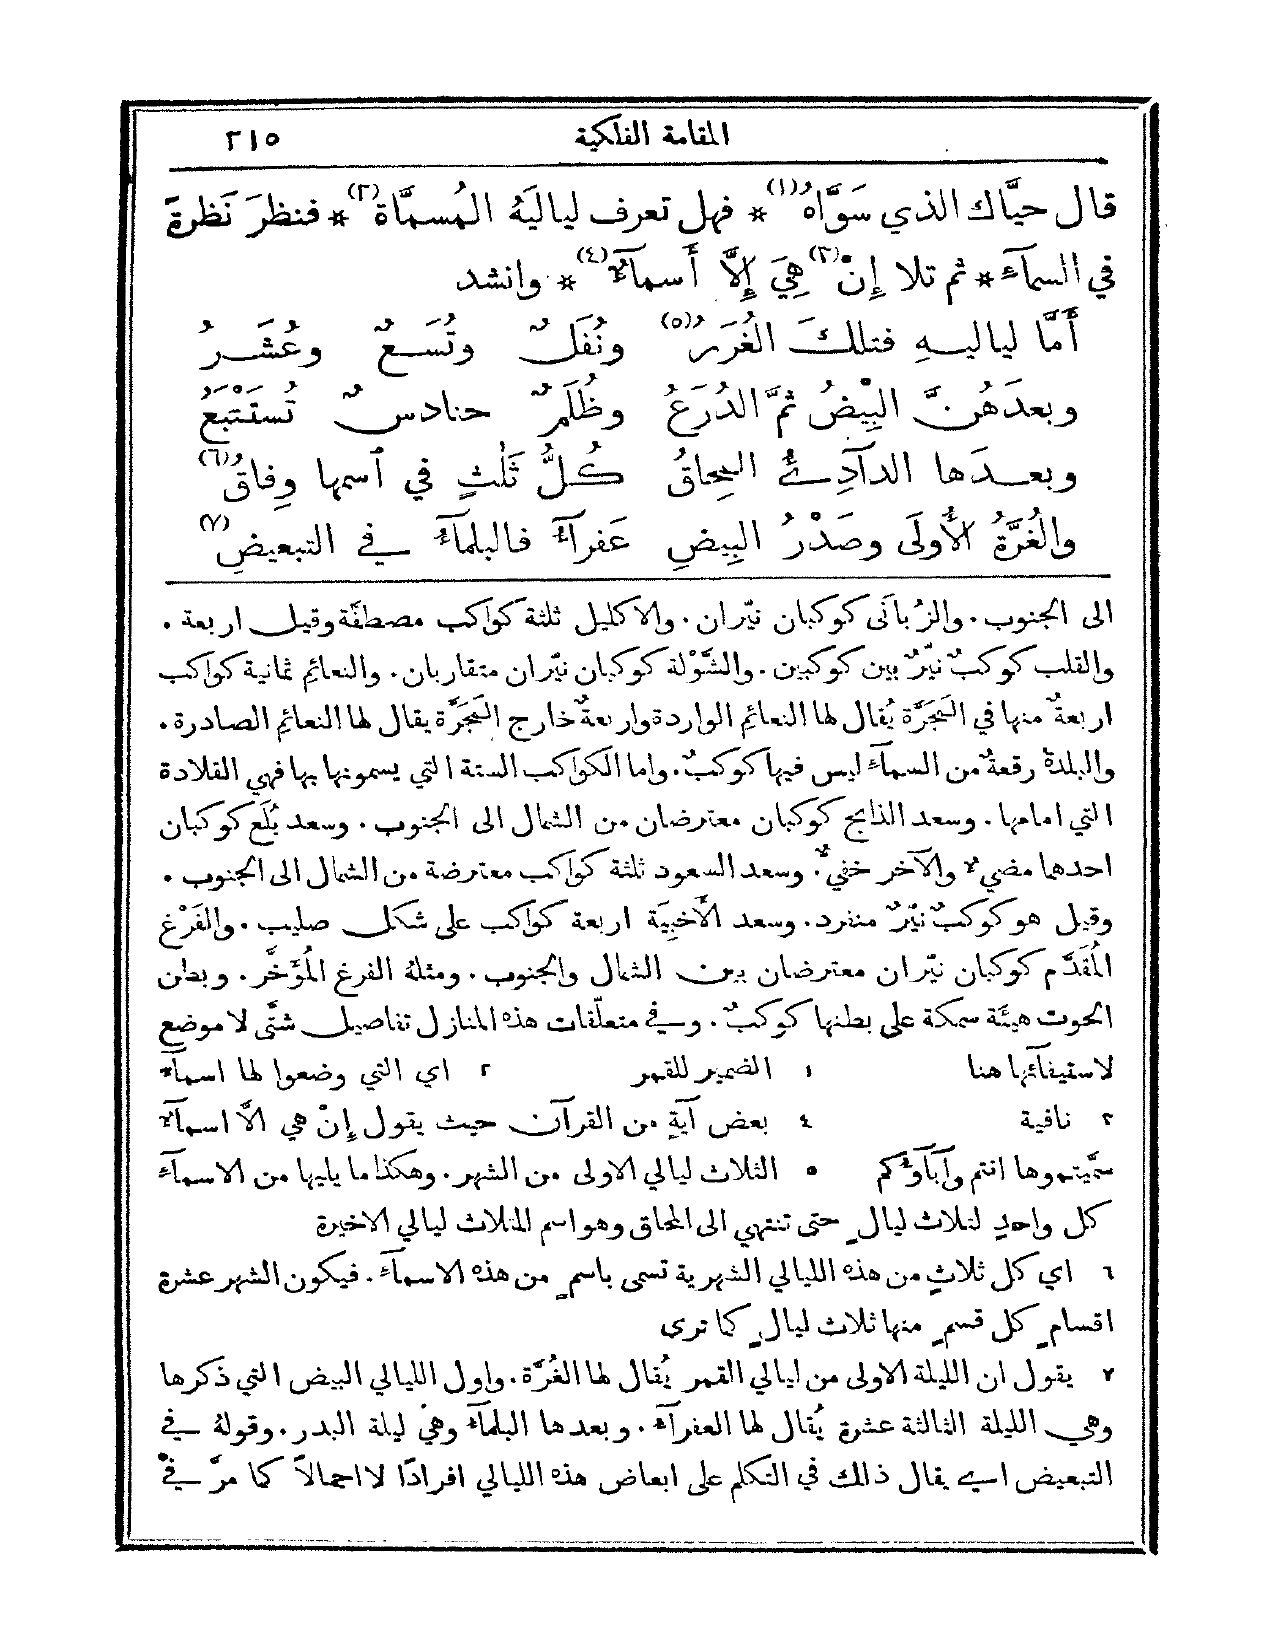 المقامة الفلكية ٢١٥
قال حيَّاك الذي سَوَّاهُ(١) * فهل تعرف ليالَيهُ المُسمَّاة(٢) * فنظرَ نَظرةً
في السمآءَ * ثم تلا إِنْ(٣) هِيَ إِلَّا أَسمآءٌ(٤) * وانشد
أَمَّا لياليـهِ فتلكَ الغُرَرُ(٥) ونُفَلٌ وتُسَعٌ وعُشَرُ
وبعدَهُنَّ البِيْضُ ثمَّ الدُرَعُ وظُلَمٌ حنادسٌ تُستَتبَعُ
وبعـدَها الدآدِئُ المِحاقُ كُلُّ ثَلٰثٍ في ٱسمها وِفاقُ(٦)
والغُرَّةُ الأُولَى وصَدْرُ البِيضِ عَفرآءُ فالبلمآءُ في التبعيضِ(٧)
الى الجنوب . والزُبانَى كوكبان نيّران . والاكليل ثلثة كواكب مصطفَّة وقيل اربعة .
والقلب كوكبٌ نيّرٌ بين كوكبين . والشَّوْلة كوكبان نيّران متقاربان . والنعائم ثمانية كواكب
اربعةٌ منها في المَجَرَّة يُقال لها النعائم الواردة واربعةٌ خارج المَجَرَّة يقال لها النعائم الصادرة .
والبلدة رقعةٌ من السمآء ليس فيها كوكبٌ . واما الكواكب الستة التي يسمونها بها فهي القلادة
التي امامها . وسعد الذابح كوكبان معترضان من الشمال الى الجنوب . وسعد بُلَع كوكبان
احدها مضيءٌ والآخر خفيٌّ . وسعد السعود ثلثة كواكب معترضة من الشمال الى الجنوب .
وقيل هو كوكبٌ نيّرٌ منفرد . وسعد الأَخبِيَة اربعة كواكب على شكل صليب . والفَرْغ
المُقدَّم كوكبان نيّران معترضان بين الشمال والجنوب . ومثلهُ الفرغ المُؤَخَّر . وبطن
الحوت هيئة سمكة على بطنها كوكبٌ . وفي متعلّقات هذه المنازل تفاصيل شتَّى لا موضع
لاستيفآئها هنا ١ الضمير للقمر ٢ اي التي وضعوا لها اسمآءً
٣ نافية ٤ بعض آيةٍ من القرآن حيث يقول إِنْ هي الَّا اسمآءٌ
سمَّيتموها انتم وآبآؤكم ٥ الثلاث ليالي الاولى من الشهر . وهكذا ما يليها من الاسمآء
كل واحدٍ لثلاث ليالٍ حتى تنتهي الى المحاق وهو اسم الثلاث ليالي الاخيرة
٦ اي كل ثلاثٍ من هذه الليالي الشهرية تسمى باسمٍ من هذه الاسمآء . فيكون الشهر عشرة
اقسامٍ كل قسمٍ منها ثلاث ليالٍ كما ترى
٧ يقول ان الليلة الاولى من ليالي القمر يُقال لها الغُرَّة . واول الليالي البيض التي ذكرها
وهي الليلة الثالثة عشرة يُقال لها العفرآء . وبعدها البلمآء وهي ليلة البدر . وقولهُ في
التبعيض اي يقال ذلك في التكلم على ابعاض هذه الليالي افرادًا لا اجمالاً كما مرَّ في